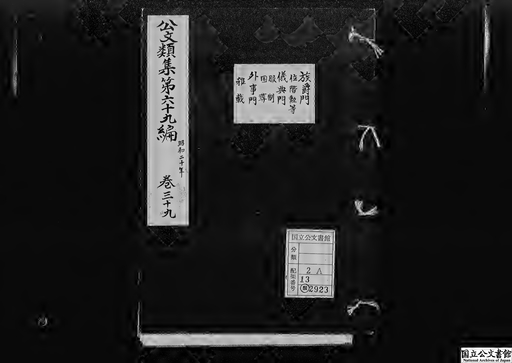 公文類集第六十九編
昭和二十年
巻三十九
族爵門
位階勲等
儀典門
服制
国葬
外事門
雑載
国立公文書館
分類
配架番号
2A
13
類2923
国立公文書館
National Archives of Japan